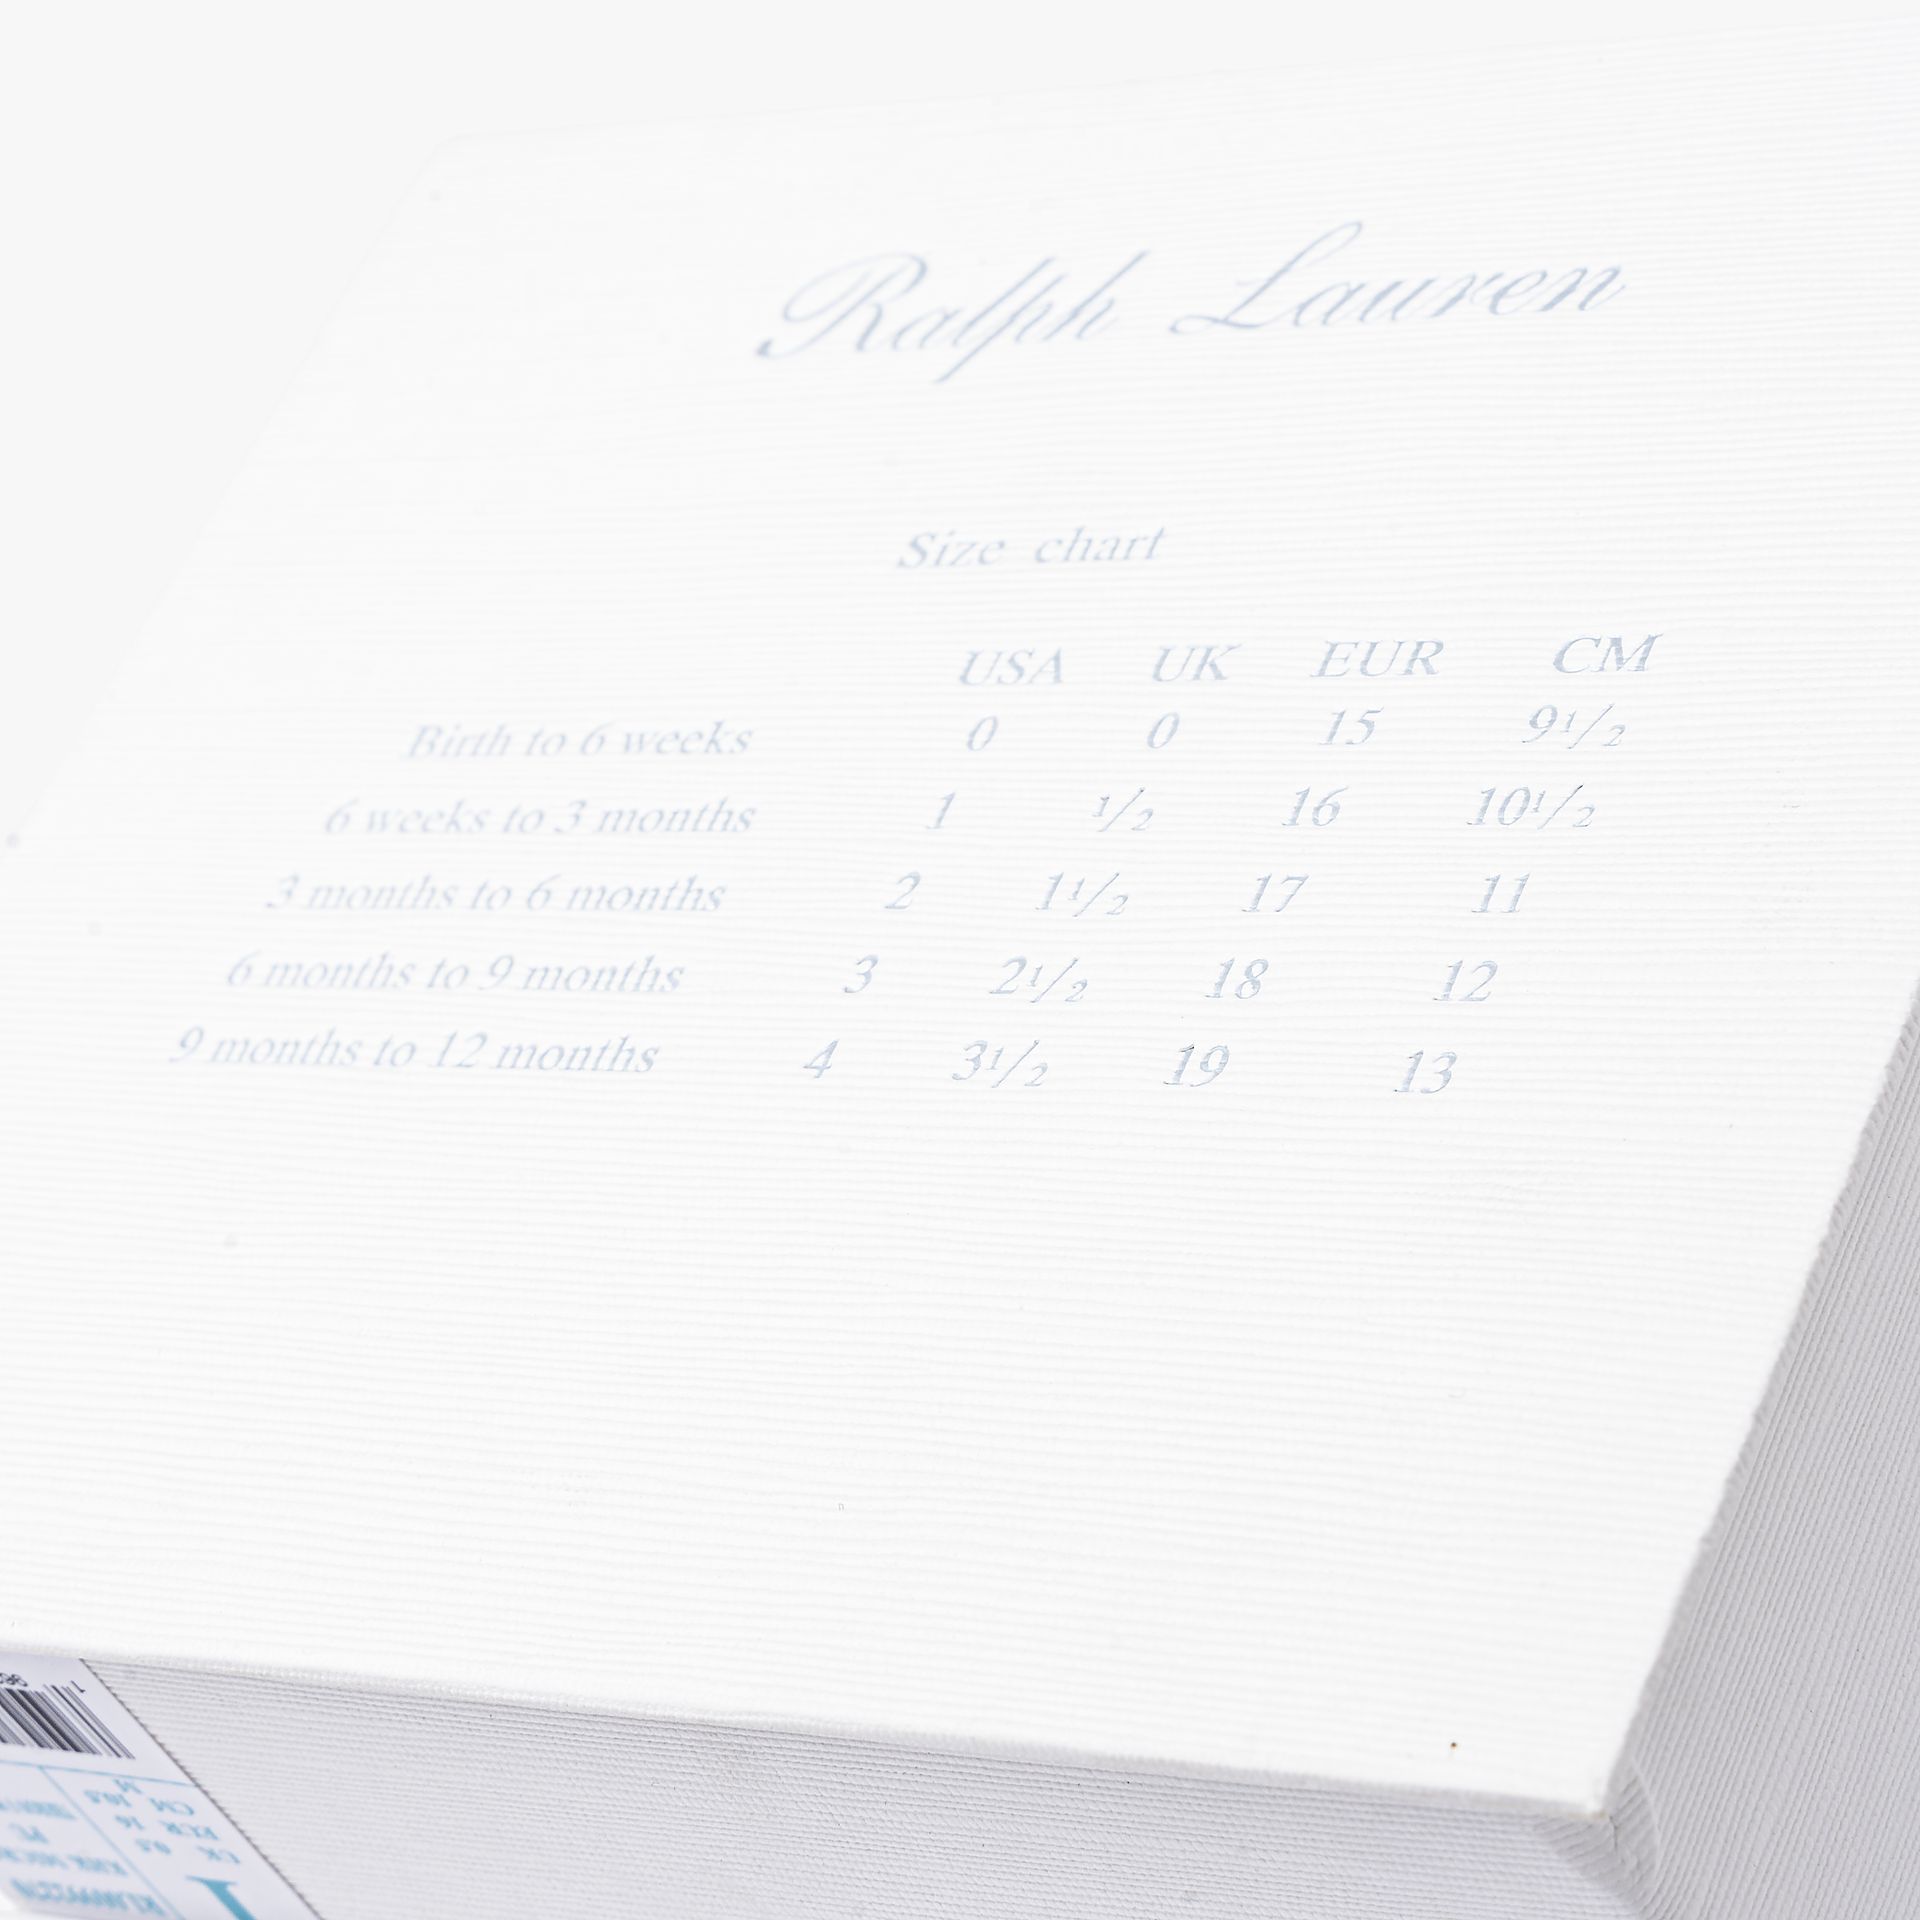 Ralph Lauren
Size chart
USA UK EUR CM
Birth to 6 weeks 0 0 15 9½
6 weeks to 3 months 1 ½ 16 10½
3 months to 6 months 2 1½ 17 11
6 months to 9 months 3 2½ 18 12
9 months to 12 months 4 3½ 19 13
1
UK 0.5
EUR 16
CM 10.5
M